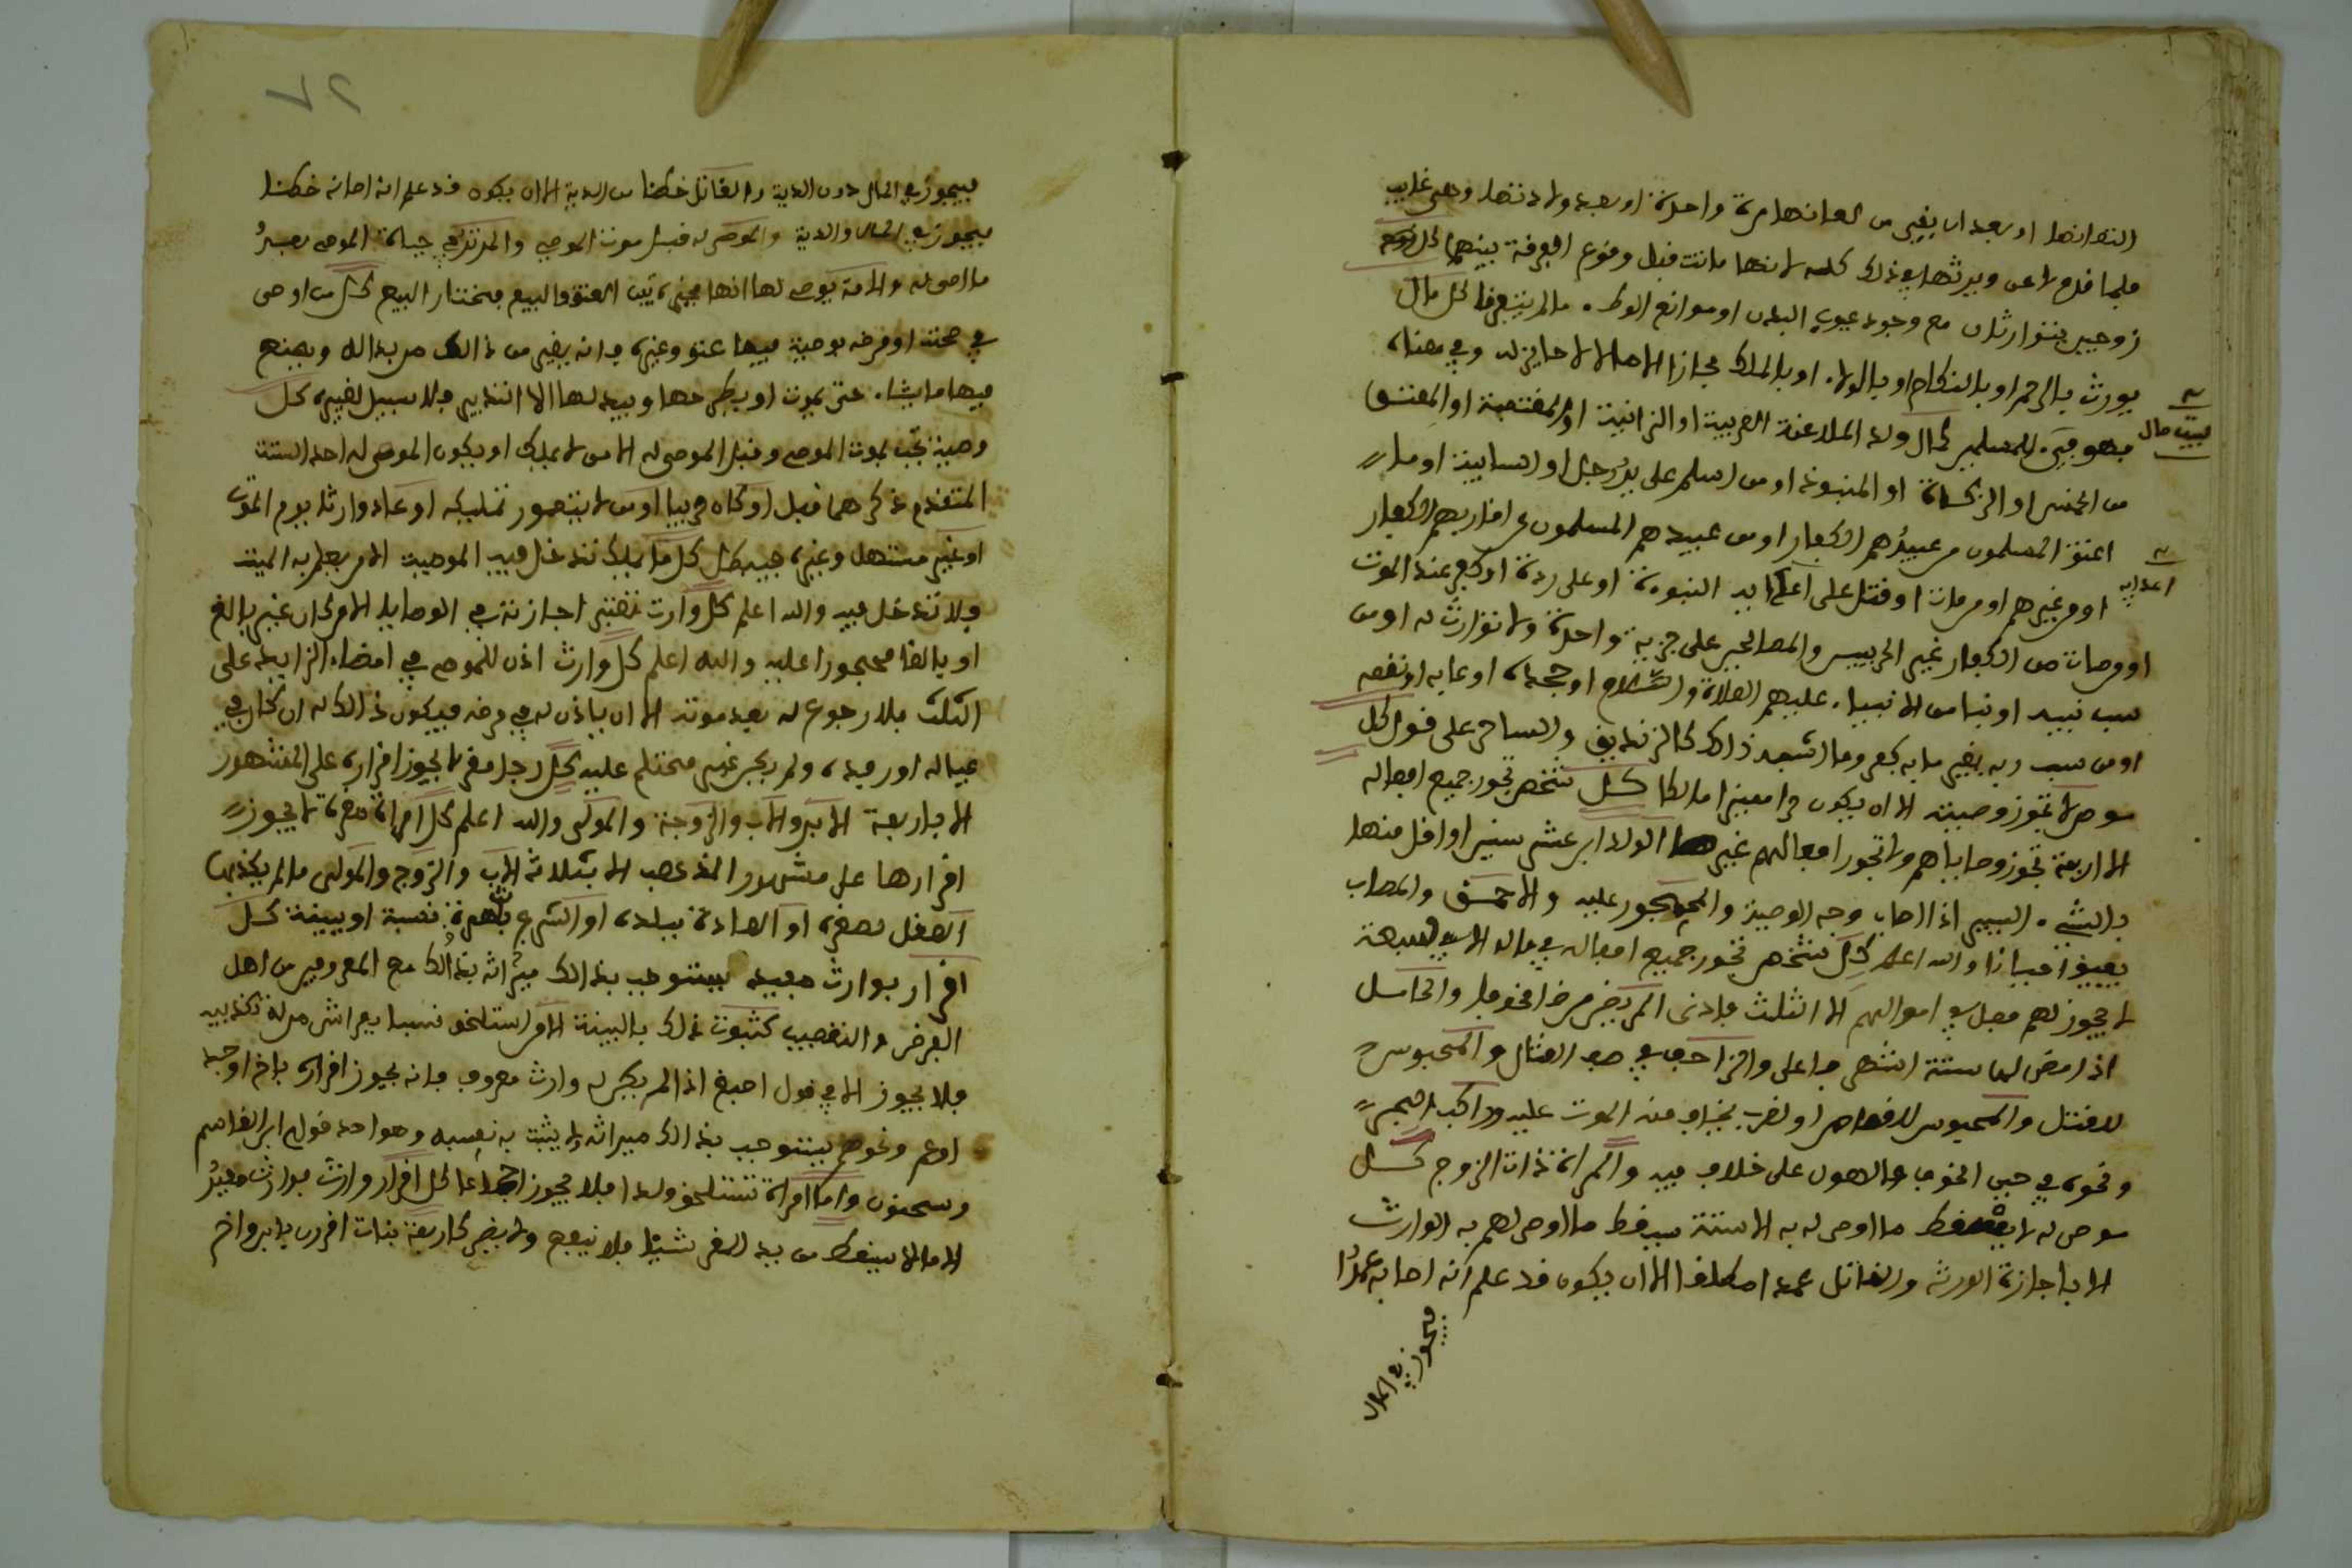 التعانها او بعد ان بقي من لعانها مرة واحدة او بعد ولادتها وهي غايب
فلما قدم لاعن ويرثها في ذلك كله لانها ماتت قبل وقوع الفرقة بينهما كل
زوجين يتوارثان مع وجود عيوب البدن او موانع الوطء ما لم كل مال
يورث بالرحم او بالنكاح او بالولاء او بالملك مجازا وفي معناه
بيت مال
فهو فيء للمسلمين كمال ولد الملاعنة العربية او الزانية او المغتصبة او المعتق
من الخمس او الزكاة او المنبوذ او من اسلم على يد رجل او السايبة او ما
اعتق المسلمون من عبيدهم الكفار او من عبيدهم المسلمون اقاربهم الكفار
اعدايه
او من غيرهم او من مات او قتل على النبوة او على ردة او كفر عند الموت
او من مات من الكفار غير الحربيين والمصالحين على جزية واحدة ولا توارث له او من
سب نبيه او نبيا من الانبياء عليهم الصلاة والسلام او جحده او عابه او نقصه
او من سب ربه بغير ما به كفر وما اشبه ذلك كالزنديق والساحر على قول كل
موص لا تجوز وصيته الا ان يكون حرا مميزا مالكا كل شخص تجوز جميع افعاله
الا اربعة تجوز وصاياهم ولا تجوز افعالهم غيرها الولد ابن عشر سنين او اقل منها
بالشيء اليسير اذا اصاب وجه الوصية والمحجور عليه والاحمق والمصاب
يفيق احيانا والله اعلم كل شخص تجوز جميع افعاله في ماله الا سبعة
لا يجوز لهم فعل في اموالهم الا الثلث فادنى المريض مرضا مخوفا والحامل
اذا مضى لها ستة اشهر فاعلى والزاحف في صف القتال والمحبوس
للقتل والمحبوس للقصاص او لضرب يخاف منه الموت عليه وراكب البحر
ونحوه في حين الخوف والهول على خلاف فيه والمراة ذات الزوج كل
موص له لا يسقط ما اوصى له به الا ستة يسقط ما اوصى لهم به الوارث
الا باجازة الورثة والقاتل عمدا مطلقا الا ان يكون قد علم انه اصابه عمدا
فيجوز في المال
٧٢
فيجوز في المال دون الدية والقاتل خطئا من الدية الا ان يكون قد علم انه اصابه خطئا
فيجوز في المال والدية والموصى له قبل موت الموصي والمرتد في حياة الموصي بعد
ما اوصى له والامة يوصي لها انها مخيرة بين العتق والبيع فتختار البيع كل من اوصى
في صحته او مرضه بوصية فيها عتق وغيره فانه يغير من ذلك ما بدا له ويصنع
فيها ما يشاء حتى يموت او يطرحها ويبدلها الا التدبير فلا سبيل لغيره كل
وصية تجب بموت الموصي وقبل الموصى له الا من لا يملك او يكون الموصى له احد الستة
المتقدم ذكرهما قبل او كان حربيا او من لا يتصور تمليكه او عاد وارثا يوم الموت
او غير مستهل وغيره كل ما يملك تدخل فيه الوصية الا من يعلم به الميت
فلا تدخل فيه والله اعلم كل وارث تعتبر اجازته في الوصايا الا من كان غير بالغ
او بالغا محجورا عليه والله اعلم كل وارث اذن للموصي في امضاء الزايد على
الثلث فلا رجوع له بعد موته الا ان ياذن له في مرضه فيكون ذلك له ان كان في
عياله او رفده ولم يكن غير محتلم عليه كل رجل مقر لا يجوز اقراره على المشهور
الا باربعة الابن والاب والزوجة والمولى والله اعلم كل امراة مقرة لا يجوز
اقرارها على مشهور المذهب الا بثلاثة الاب والزوج والمولى ما لم يكذبها
العقل لصغره او العادة ببلده او الشرع بشهرة نسبة او بينة كل
اقرار بوارث يستوجب بذلك ميراثه بذلك مع المعروفين من اهل
الفرض والتعصيب كثبوت ذلك بالبينة الا من استلحق نسبا
فلا يجوز الا في قول اصبغ اذا لم يكن له وارث معروف فانه يجوز اقراره باخ او جد
او عم ونحوهم يستوجب بذلك ميراثه ولا يثبت به نسبه وهو احد قولي ابن القاسم
وسحنون واما امراة تستلحق ولدا فلا يجوز اجماعا كل اقرار وارث بوارث
الا ما لا يسقط من يد المقر شيئا فلا ينفع ولا يضر كاربعة بنات اقررن بابن واخ